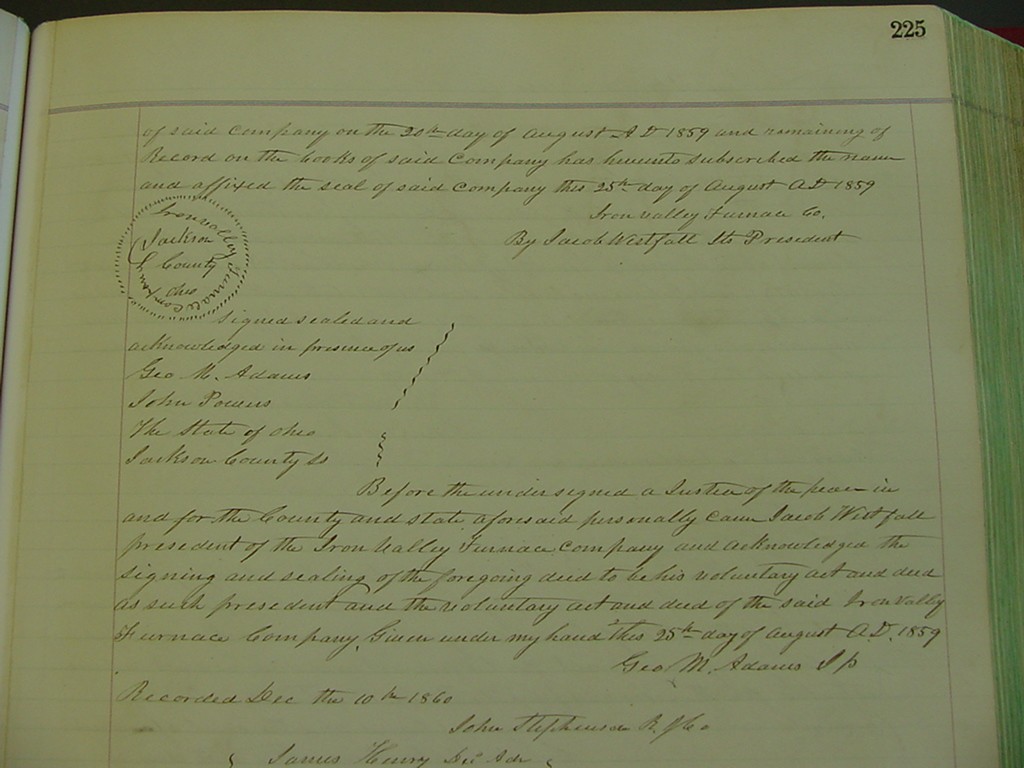 225
of said Company on the 20th day of August A D 1859 and remaining of
Record on the books of said Company has hereunto subscribed the name
and affixed the seal of said Company this 25th day of August A.D 1859
Iron Valley Furnace Co.
By Jacob Westfall Its President
Iron Valley Furnace Company
Jackson
County
Ohio
Signed sealed and
acknowledged in presence of us
Geo M. Adams
John Powers
The State of Ohio
Jackson County ss
Before the undersigned a Justice of the peace in
and for the County and state aforesaid personally came Jacob Westfall
president of the Iron Valley Furnace Company and acknowledged the
signing and sealing of the foregoing deed to be his voluntary act and deed
as such president and the voluntary act and deed of the said Iron Valley
Furnace Company. Given under my hand this 25th day of August A.D. 1859
Geo M. Adams J p
Recorded Dec the 10th 1860
John Stephenson R. J Co
James Henry Dec Adr